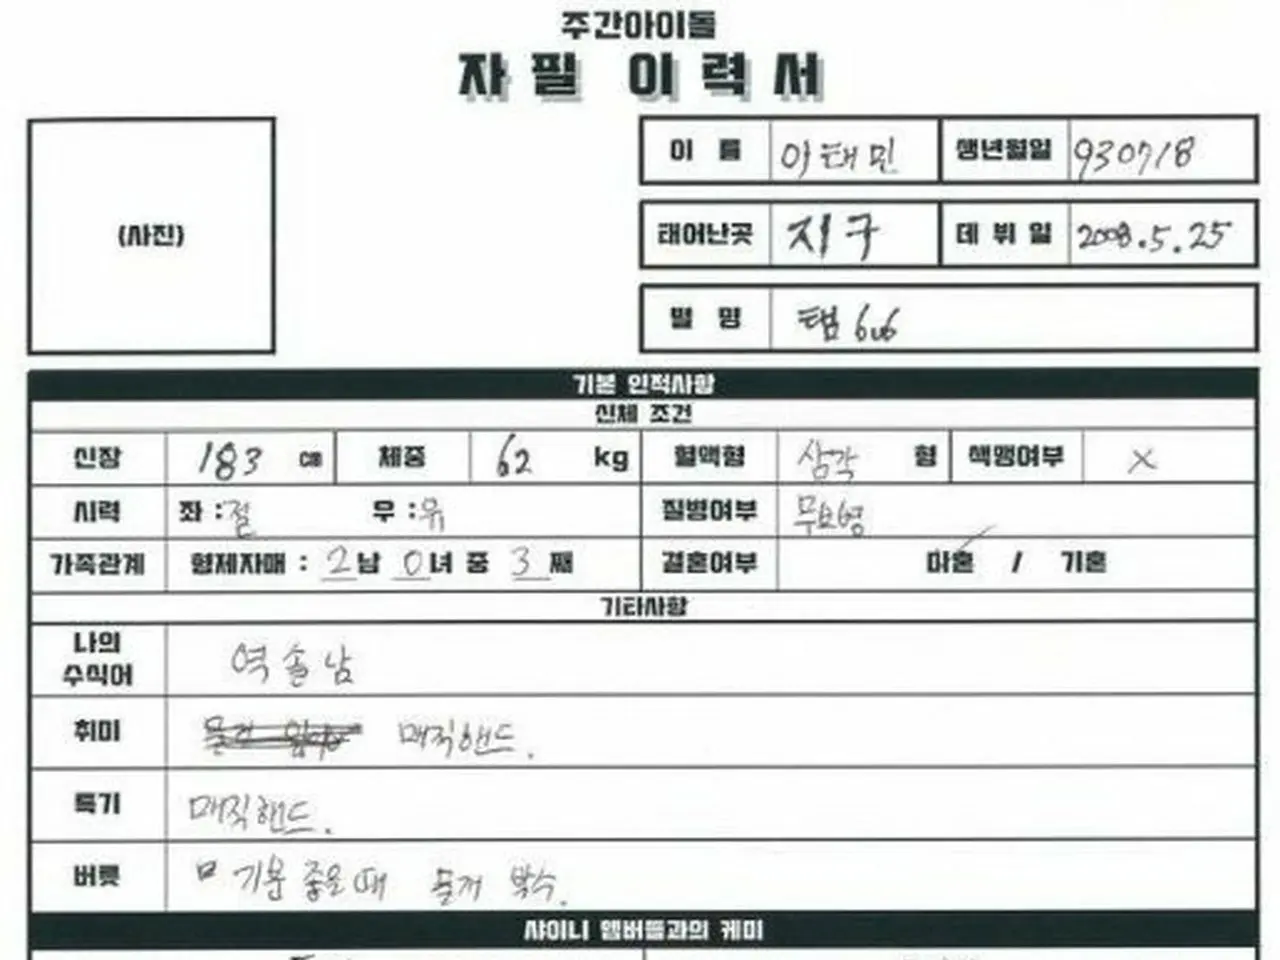 주간아이돌
자필 이력서
(사진)
이 름 이태민 생년월일 930718
태어난곳 지구 데뷔일 2008.5.25
별명 탬
기본 인적사항
신체 조건
신장 183 cm 체중 62 kg 혈액형 삼각 형 색맹여부 X
시력 좌 : 절 우 : 유 질병여부 무보병
가족관계 형제자매 : 2 남 0 녀 중 3 째 결혼여부 미혼 / 기혼
기타사항
나의 수식어 역솔남
취미 매직핸드.
특기 매직핸드.
버릇 기분 좋을 때 물개 박수.
샤이니 멤버들과의 케미